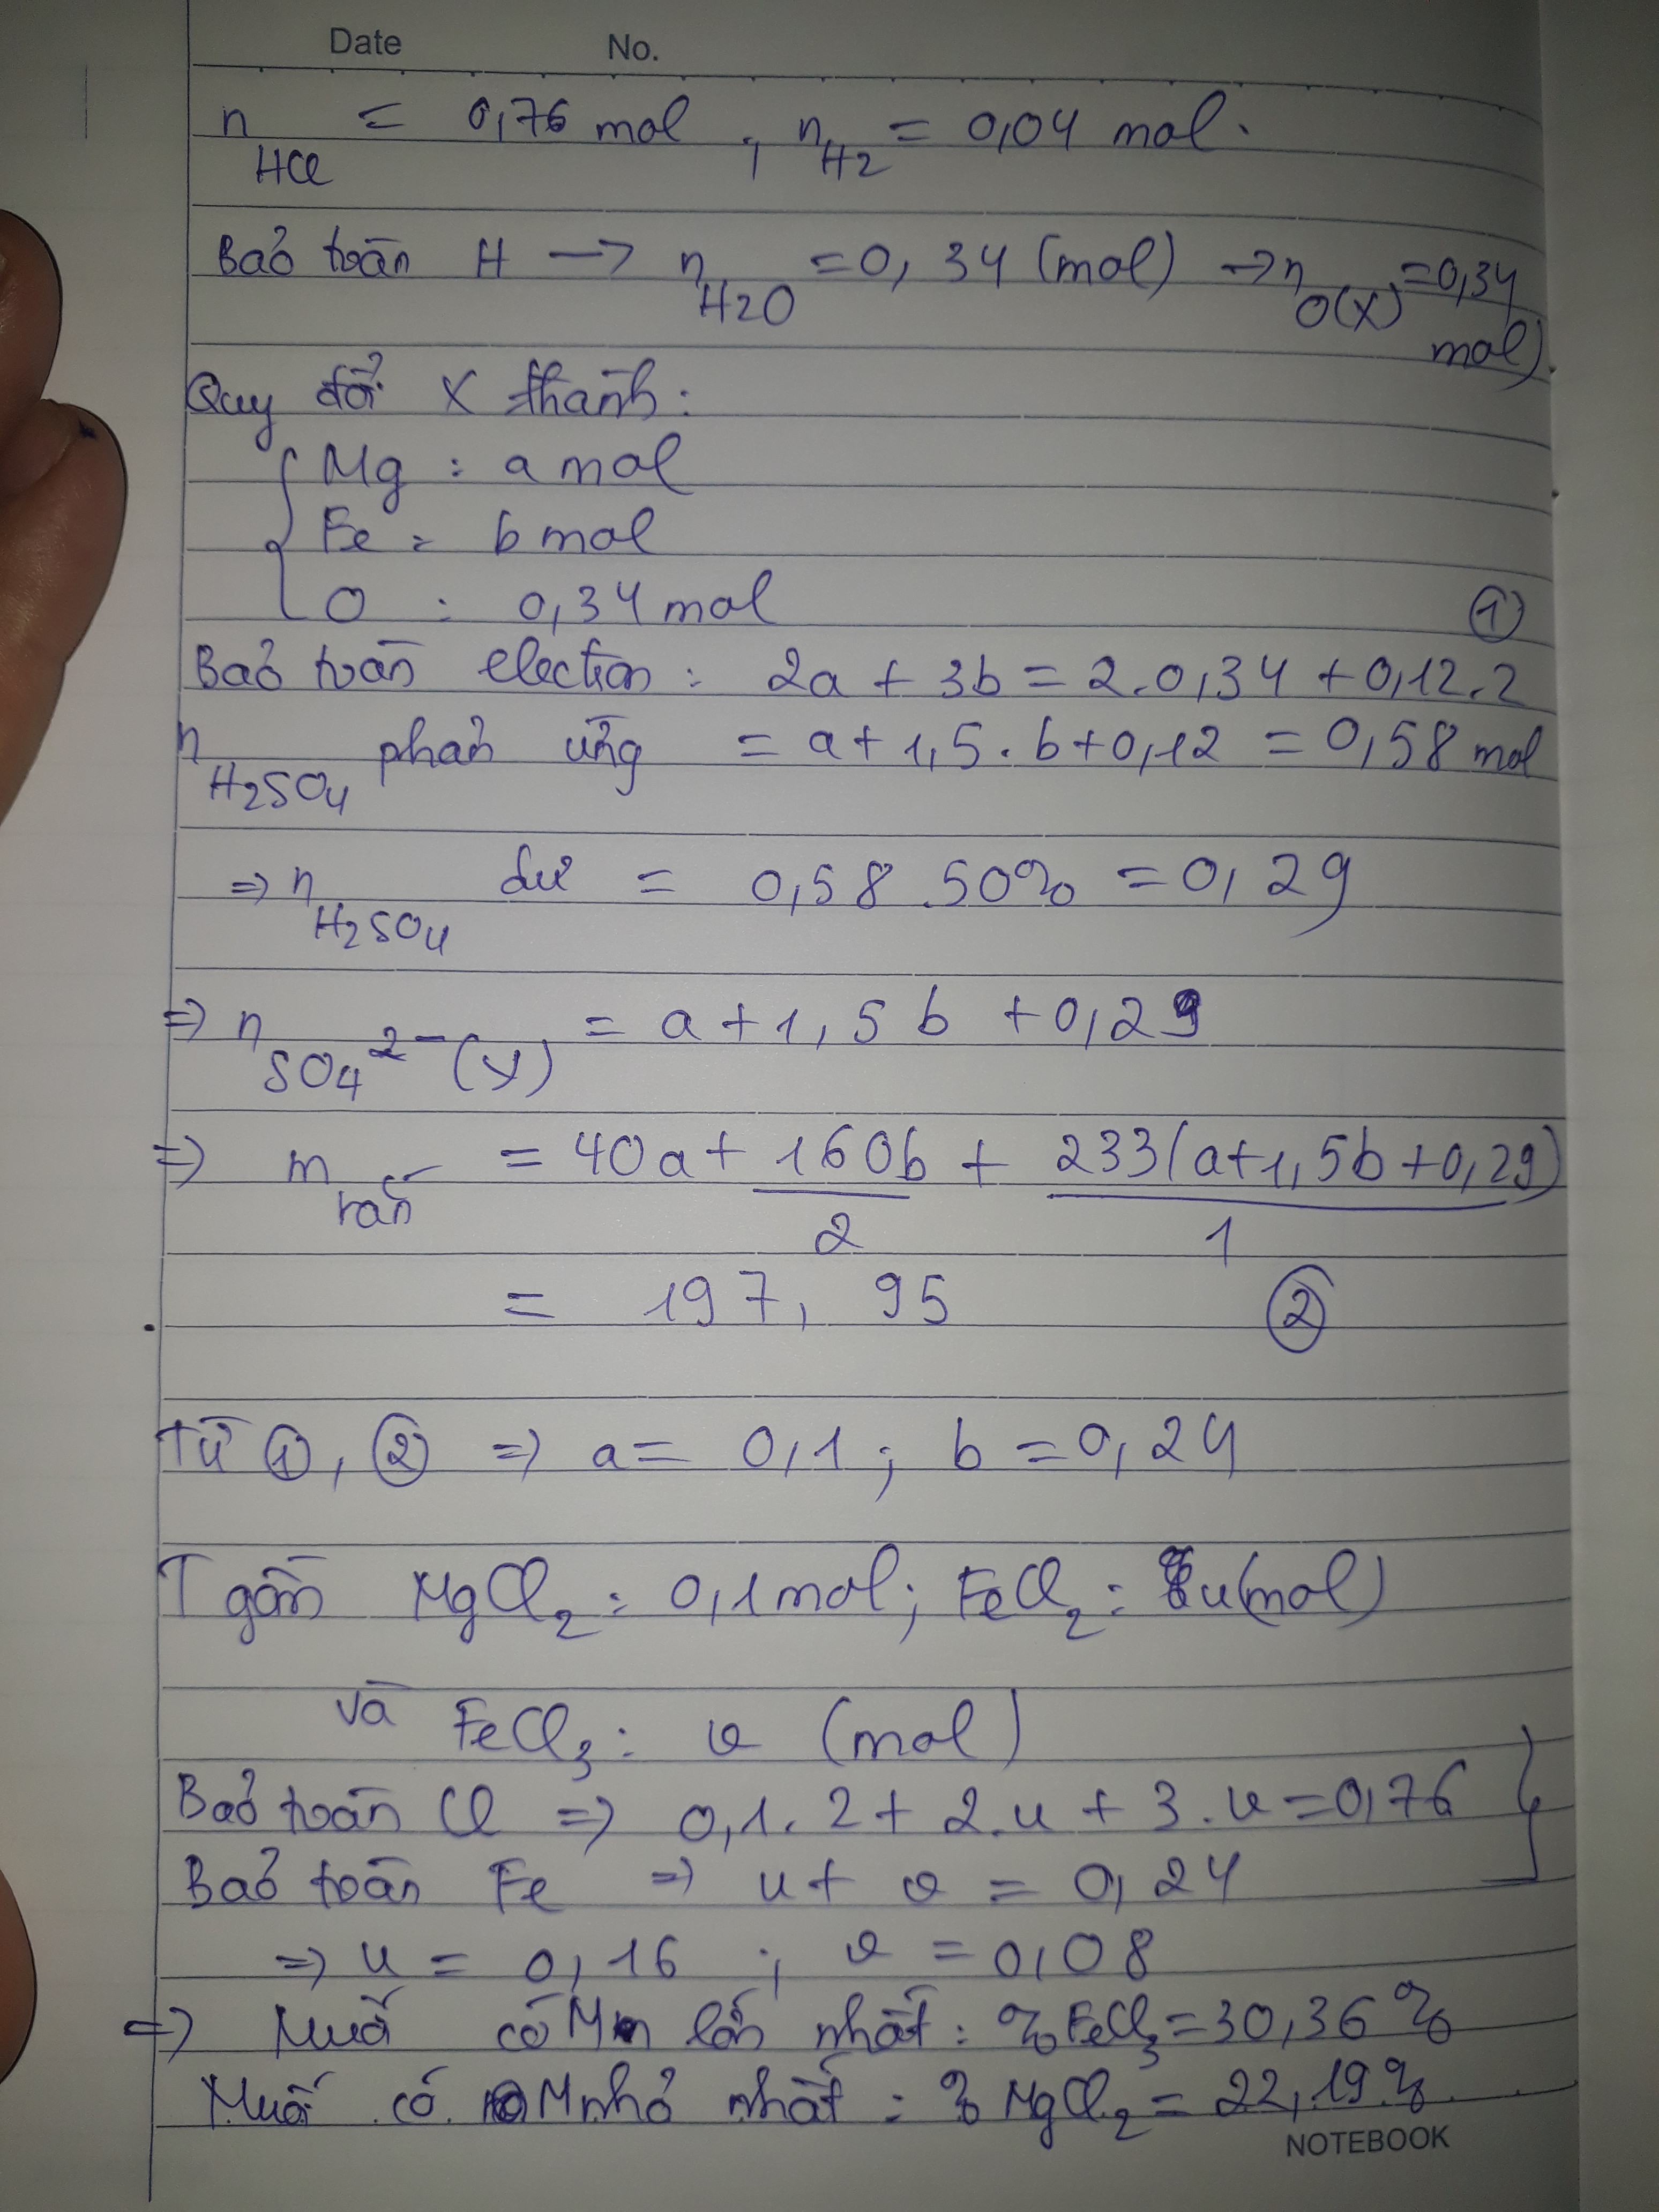 Date No.
n HCl = 0,76 mol ; n H2 = 0,04 mol.
Bảo toàn H —> n H2O = 0,34 (mol) -> n O(X) = 0,34 mol)
Quy đổi X thành:
Mg : a mol
Fe : b mol
O : 0,34 mol
①
Bảo toàn electron : 2a + 3b = 2.0,34 + 0,12.2
n H2SO4 phản ứng = a + 1,5.b + 0,12 = 0,58 mol
=> n H2SO4 dư = 0,58.50% = 0,29
=> n SO4 2- (Y) = a + 1,5b + 0,29
=> m rắn = 40a + 160b/2 + 233(a+1,5b+0,29)/1
= 197,95 ②
Từ ①, ② => a = 0,1 ; b = 0,24
T gồm MgCl2 : 0,1 mol; FeCl2 : u (mol)
và FeCl3 : v (mol)
Bảo toàn Cl => 0,1.2 + 2.u + 3.v = 0,76
Bảo toàn Fe => u + v = 0,24
=> u = 0,16 ; v = 0,08
=> Muối có M lớn nhất : % FeCl3 = 30,36%
Muối có M nhỏ nhất : % MgCl2 = 22,19%
NOTEBOOK